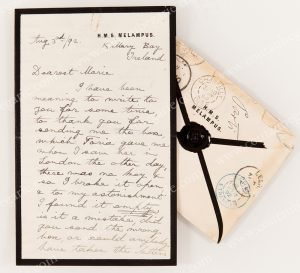 Aug 3rd/92.
H.M.S. MELAMPUS.
Bay
Ireland
Dearest Marie
I have been
meaning to write to
you for some time,
to thank you for
sending me the box,
which gave me
when I saw her in
London the other day,
there was no key
so I broke it open
& to my astonishment
I found it empty
is it a mistake did
you send the wrong
one or could anybody
have taken the
H.M.S.
MELAMPUS.